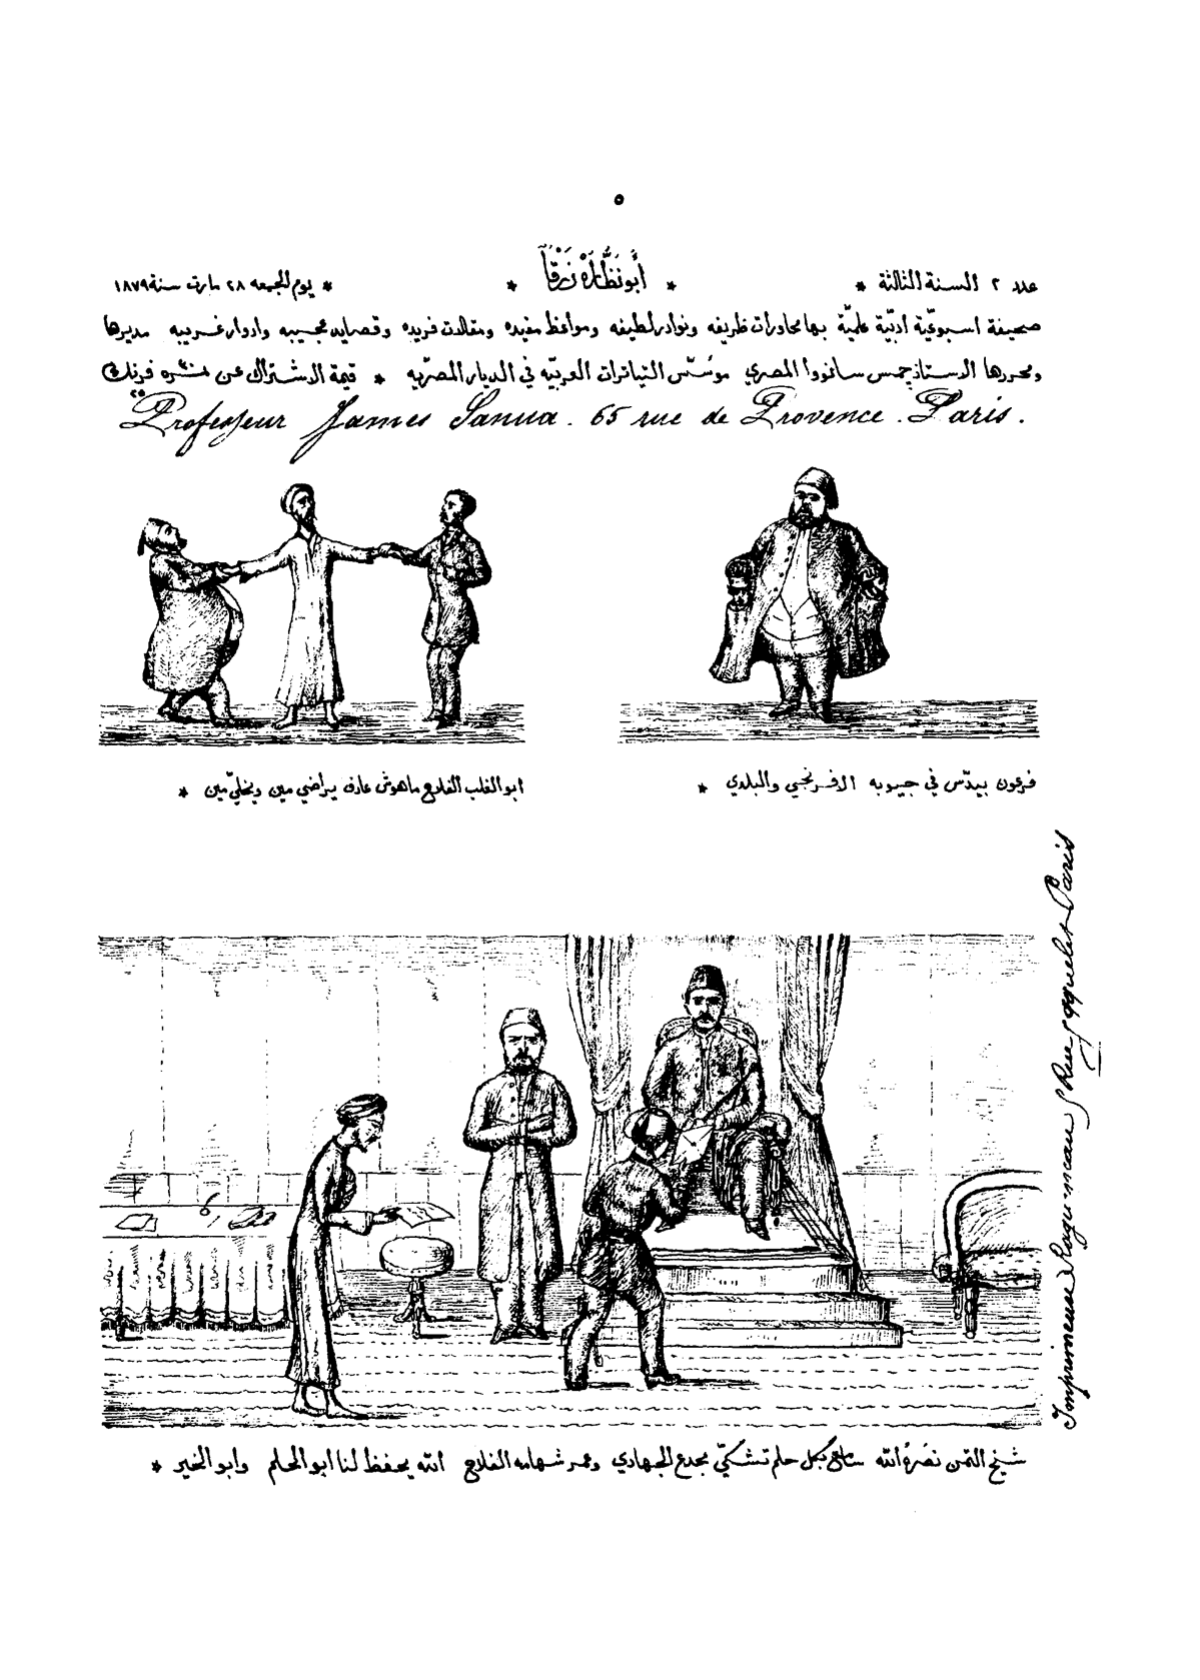 ٥
عدد ٢ السنة الثالثة * أَبُونَظَّارَهْ زَرْقَا * يوم الجمعه ٢٨ مارت سنة ١٨٧٩ *
صحيفة اسبوعيّة ادبيّة علميّة بها محاورات ظريفه ونوادر لطيفه ومواعظ مفيده ومقالات فريده وقصايد عجيبه وادوار غريبه مديرها
ومحررها الاستاذ جمس سانووا المصري موسّس التياترات العربيّه في الديار المصريّه * قيمة الاشتراك عن سنه فرنك
٢٥
Professeur James Sanua. 65 rue de Provence. Paris.
فرعون بيدّس في جيوبه الافرنجي والبلدي *
ابو الغلب الفلاح ماهوش عارف يراضي مين ويخلّي مين *
Imprimeur Ragueneau Rue Joquelet Paris
شيخ التمن نصَرهُ الله سامع بكل حلم تشكّي مجدع الجهادي وعمر شهامه الفلاح الله يحفظ لنا ابو الحلم وابو الخير *